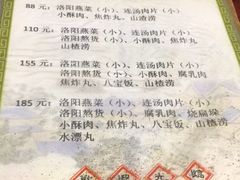 88 元:洛阳燕菜(小)、连汤肉片(小)、
小酥肉、焦炸丸、山渣涝
110 元:洛阳燕菜(小)、连汤肉片(小)、
洛阳熬货(小)、小酥肉、焦炸丸、
山楂涝
155元:洛阳燕菜(小)、连汤肉片(小)、
洛阳熬货(小)、小酥肉、腐乳肉、
焦炸丸、八宝饭、山楂涝
185元:洛阳燕菜(小)、连汤肉片(小)、
洛阳熬货(小)、腐乳肉、烧扁垛
小酥肉、焦炸丸、八宝饭、山楂涝
水漂丸